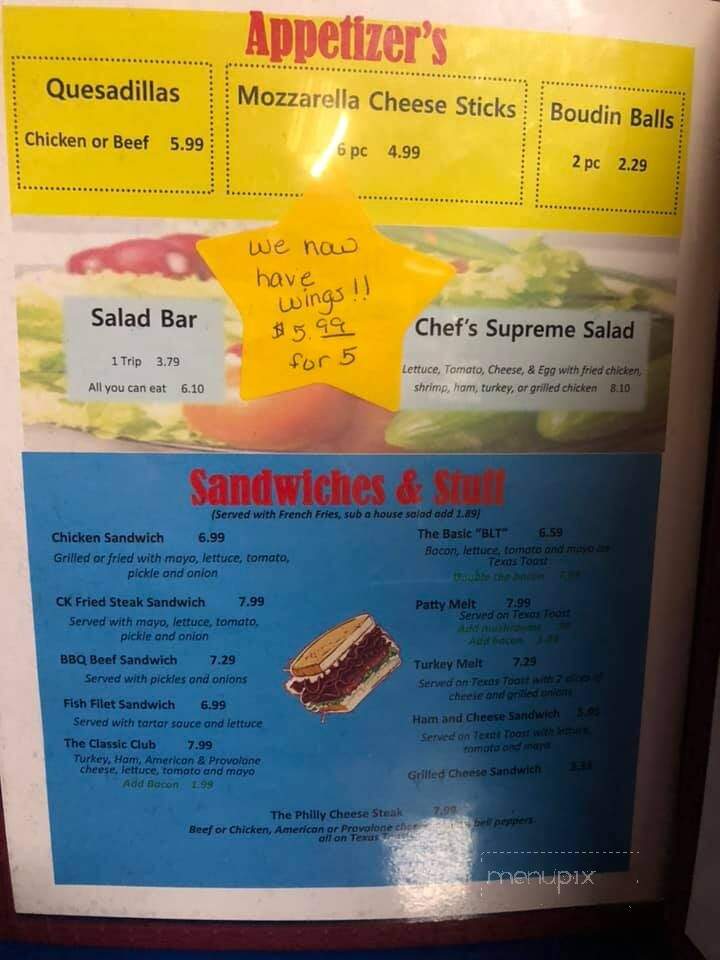 Appetizer's
Quesadillas
Chicken or Beef 5.99
Mozzarella Cheese Sticks
6 pc 4.99
Boudin Balls
2 pc 2.29
we now
have
wings!!
$5.99
for 5
Salad Bar
1 Trip 3.79
All you can eat 6.10
Chef's Supreme Salad
Lettuce, Tomato, Cheese, & Egg with fried chicken,
shrimp, ham, turkey, or grilled chicken 8.10
Sandwiches & Stuff
(Served with French Fries, sub a house salad add 1.89)
Chicken Sandwich 6.99
Grilled or fried with mayo, lettuce, tomato,
pickle and onion
CK Fried Steak Sandwich 7.99
Served with mayo, lettuce, tomato,
pickle and onion
BBQ Beef Sandwich 7.29
Served with pickles and onions
Fish Filet Sandwich 6.99
Served with tartar sauce and lettuce
The Classic Club 7.99
Turkey, Ham, American & Provolone
cheese, lettuce, tomato and mayo
Add Bacon 1.99
The Basic "BLT" 6.59
Bacon, lettuce, tomato and mayo on
Texas Toast
Double the bacon
Patty Melt 7.99
Served on Texas Toast
Add mushrooms
Add bacon
Turkey Melt 7.29
Served on Texas Toast with 2 slices of
cheese and grilled onions
Ham and Cheese Sandwich
Served on Texas Toast with lettuce,
tomato and mayo
Grilled Cheese Sandwich
The Philly Cheese Steak 7.99
Beef or Chicken, American or Provolone bell peppers
all on Texas
menupix